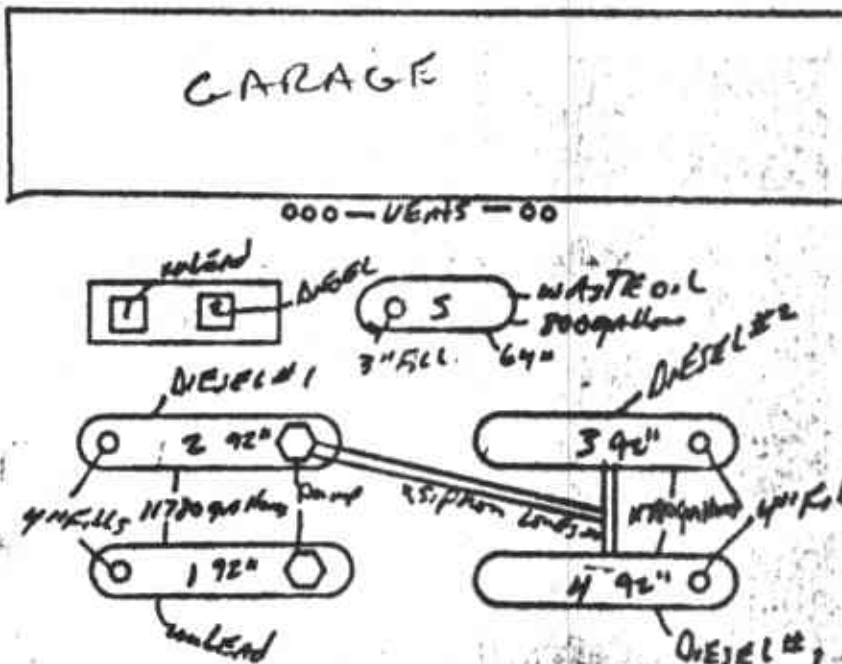 GARAGE
000 — VENTS — 00
unLEAD
DIESEL
1
2
5
WASTE OIL
800 gallons
3" FILL
64"
DIESEL #1
DIESEL #2
2 92"
3 92"
4" Fills
11780 gallons
Pump
SiPhon
Lines
gallons
4" Fill
1 92"
4 92"
unLEAD
DIESEL #